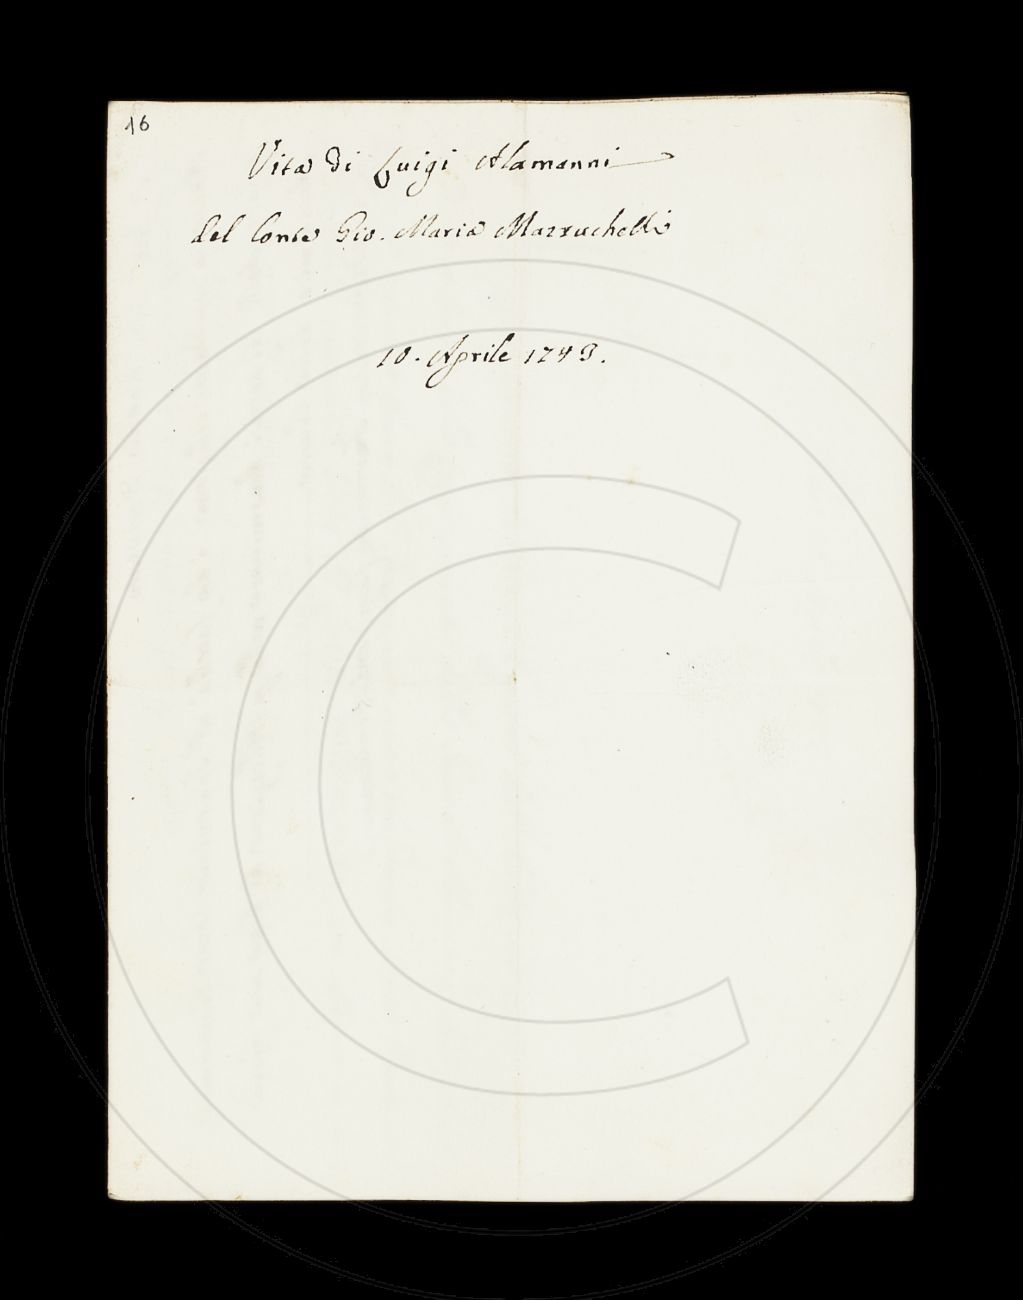 16
Vita di Luigi Alamanni
del Conte Gio. Maria Mazzuchelli
10. Aprile 1743.